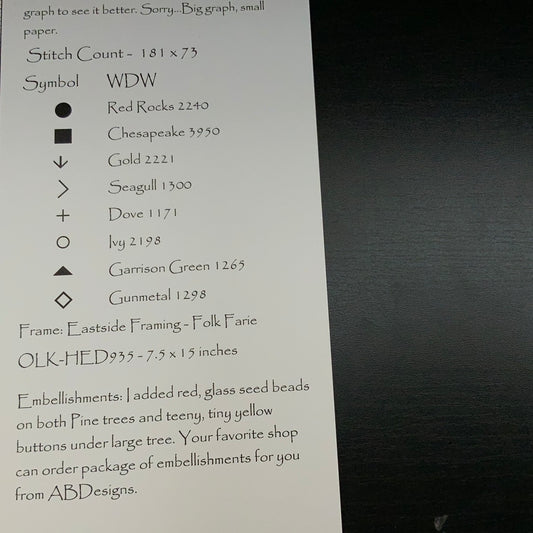 graph to see it better. Sorry...Big graph, small
paper.
Stitch Count - 181 x 73
Symbol WDW
Red Rocks 2240
Chesapeake 3950
Gold 2221
Seagull 1300
Dove 1171
Ivy 2198
Garrison Green 1265
Gunmetal 1298
Frame: Eastside Framing - Folk Farie
OLK-HED935 - 7.5 x 15 inches
Embellishments: I added red, glass seed beads
on both Pine trees and teeny, tiny yellow
buttons under large tree. Your favorite shop
can order package of embellishments for you
from ABDesigns.